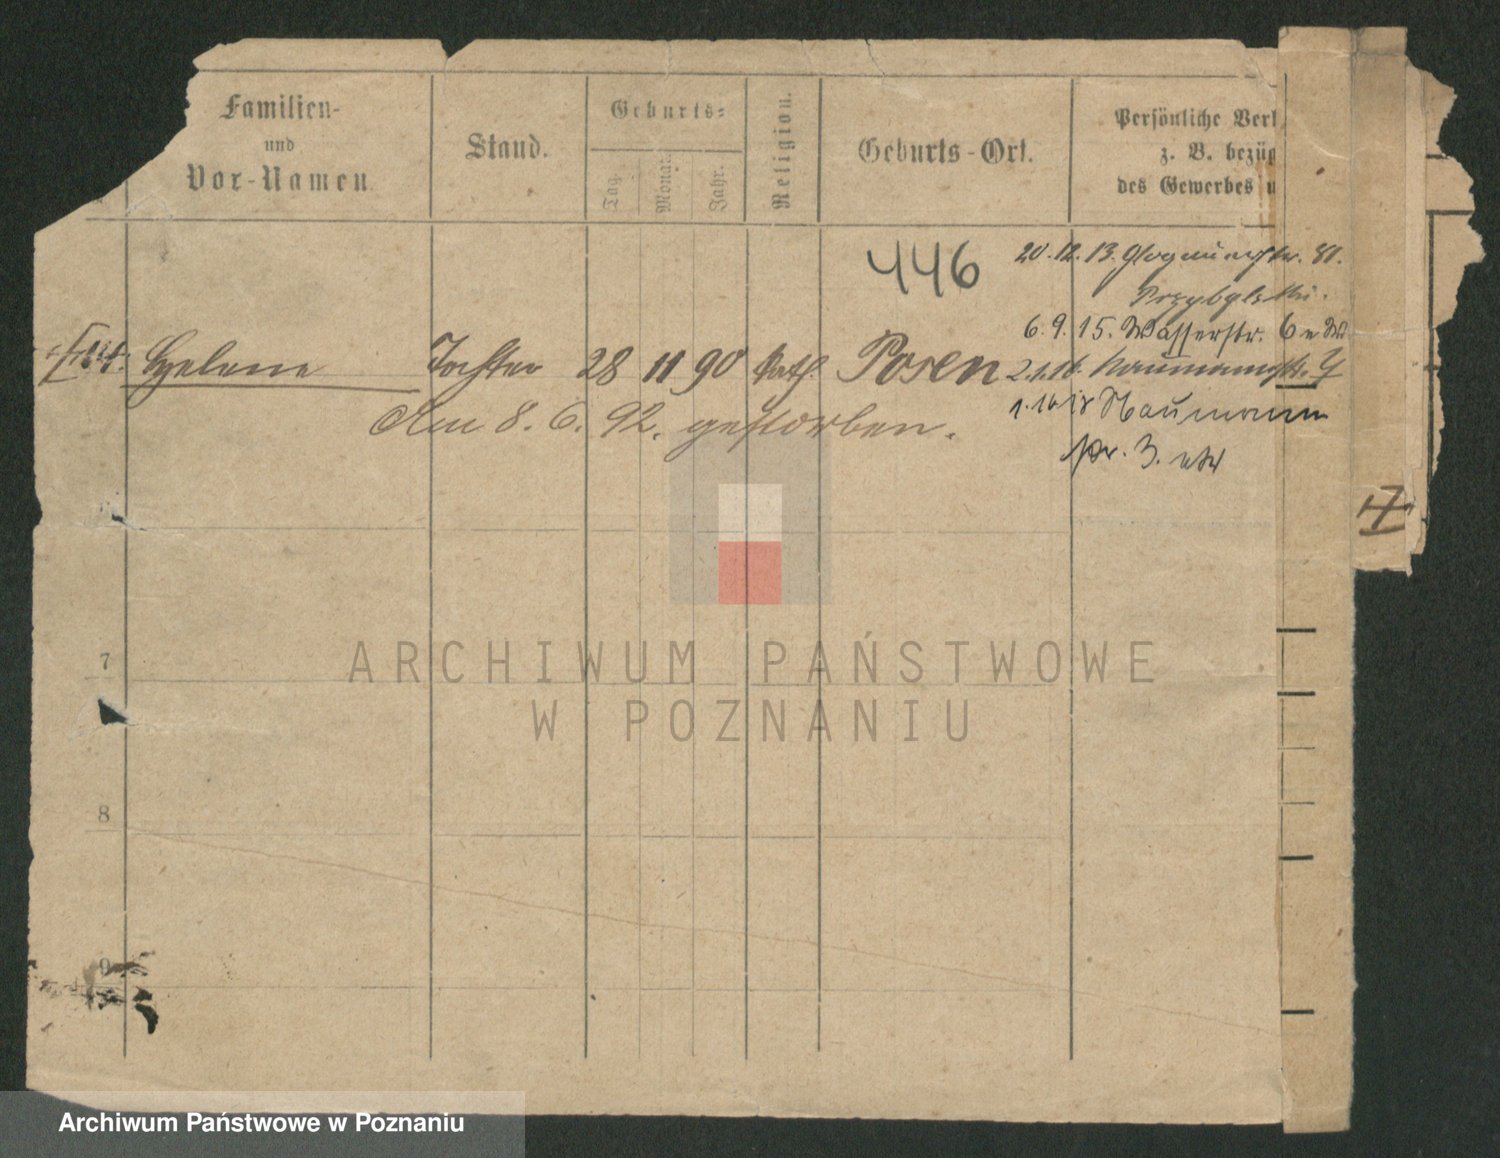 Familien-
und
Vor-Namen.
Stand.
Geburts-
Tag.
Monat.
Jahr.
Religion.
Geburts-Ort.
Persönliche Verh
z. B. bezüg
des Gewerbes u
446
20.12.13. Glogauerstr. 81.
Przybylski.
6.9.15. Wasserstr. 6
Helene Tochter 28 11 90 kath. Posen
Naumannstr.
Am 8. 6. 92. gestorben.
Naumann
7
8
9
ARCHIWUM PAŃSTWOWE
W POZNANIU
Archiwum Państwowe w Poznaniu